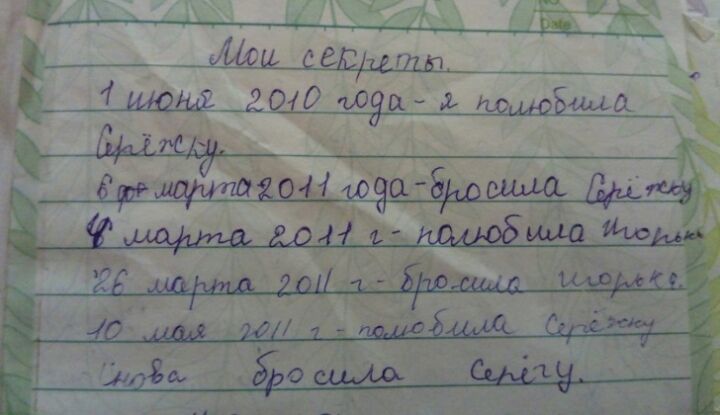 No
Date
Мои секреты.
1 июня 2010 года - я полюбила
Серёжку.
6 марта 2011 года - бросила Серёжку
марта 2011 г - полюбила Игорька
26 марта 2011 г - бросила Игорька.
10 мая 2011 г - полюбила Серёжку
Снова бросила Серёгу.